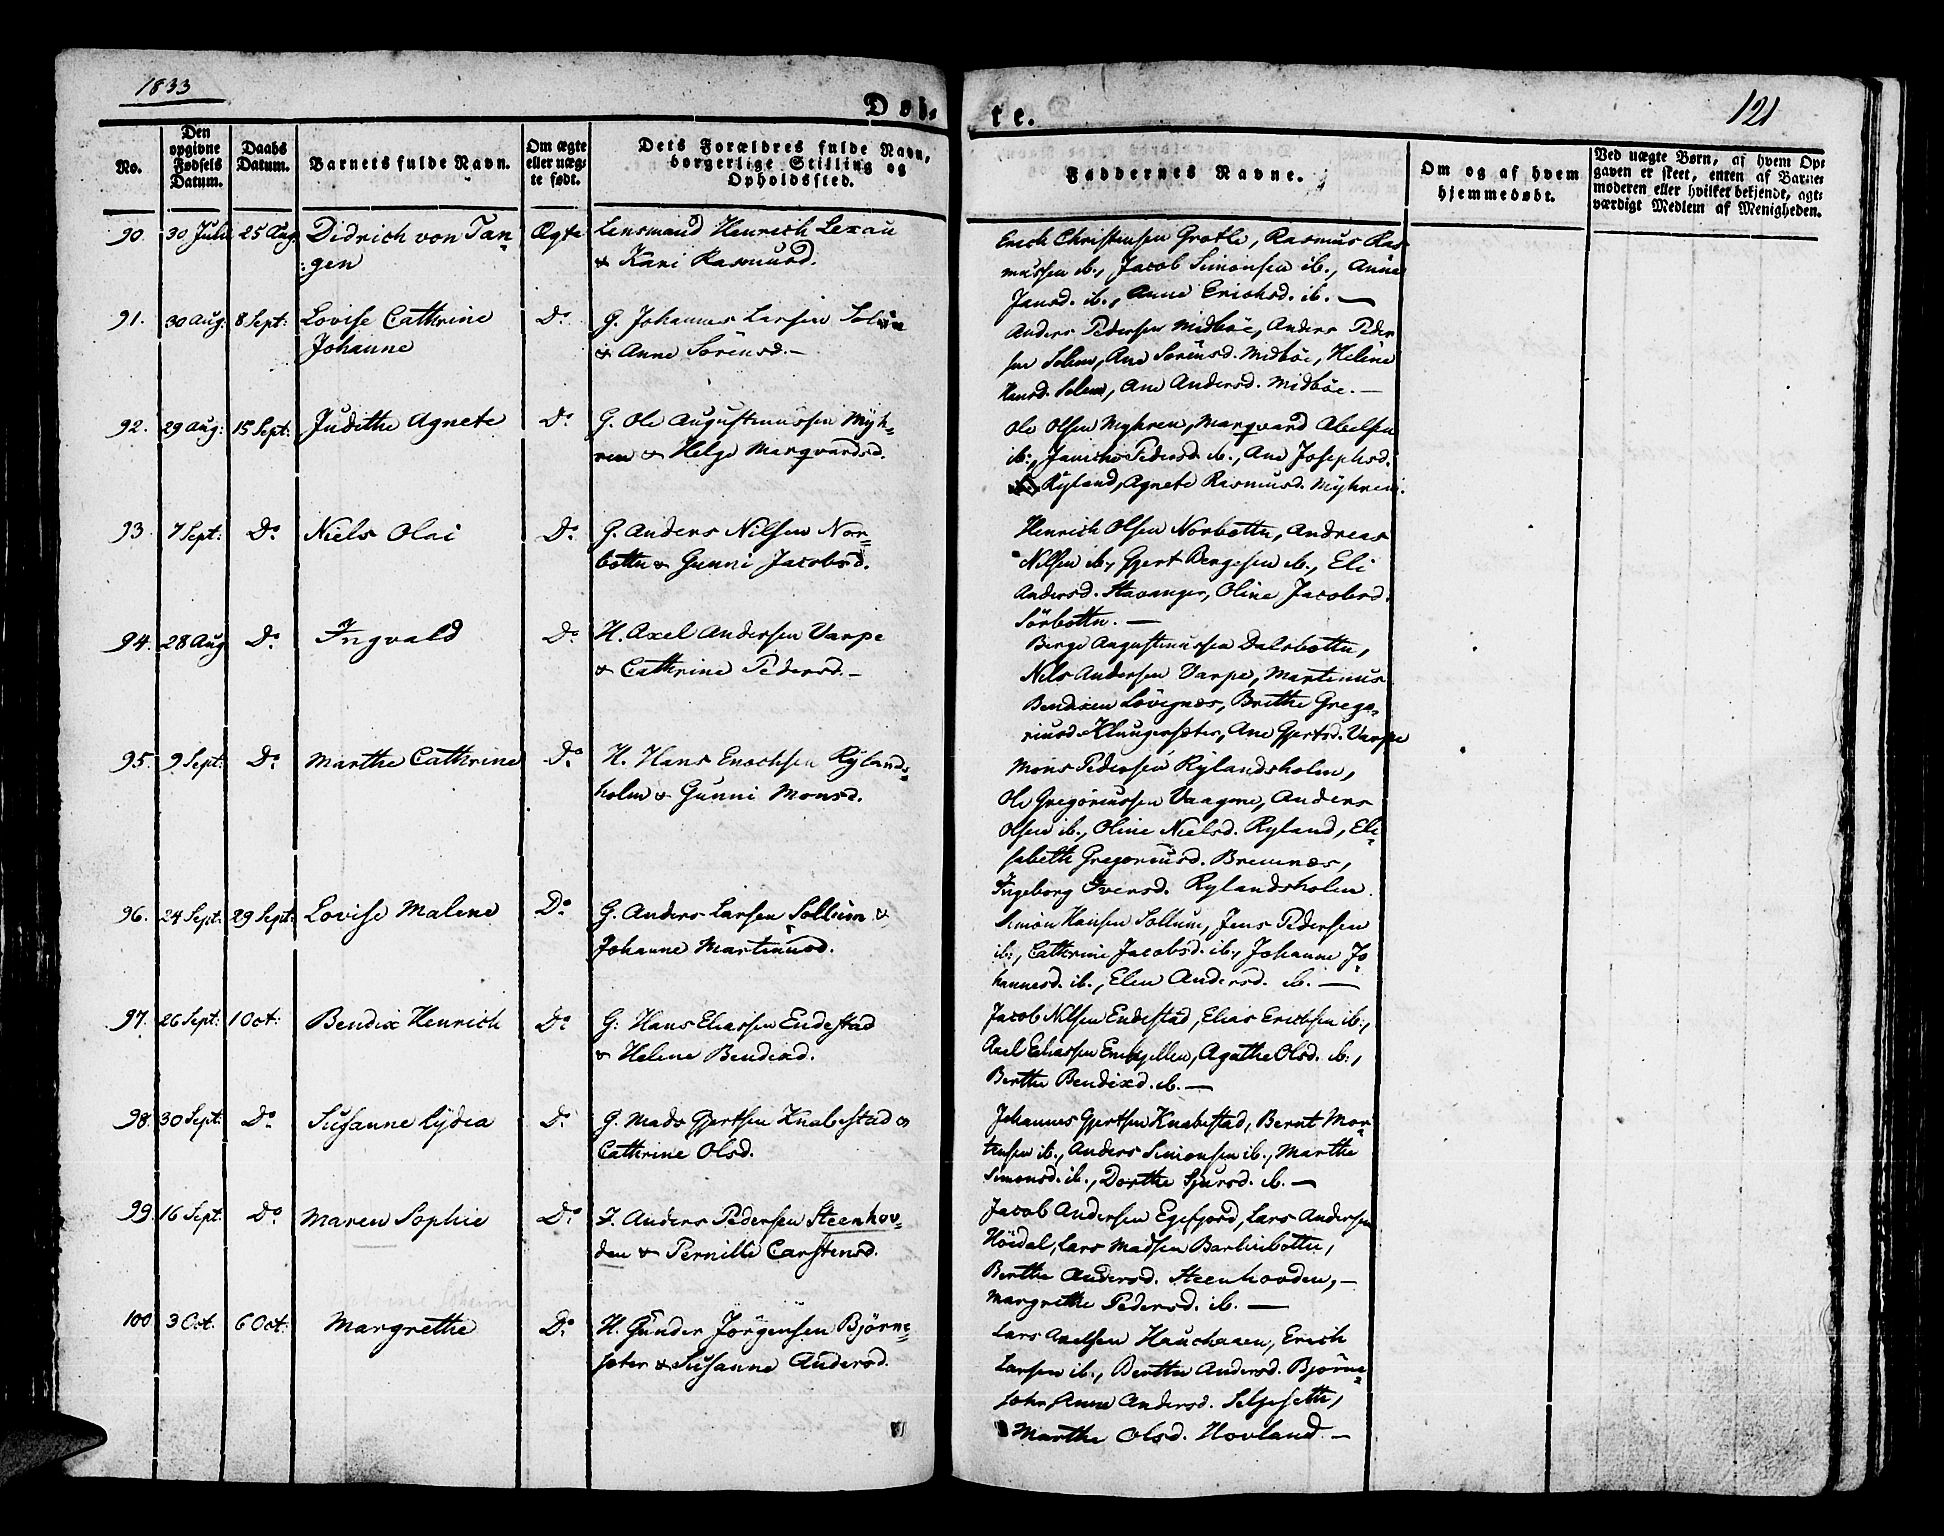 1833
Døb-
te.
121
No.
Den
opgivne
Fødsels
Datum.
Daabs
Datum.
Barnets fulde Navn.
Om ægte
eller uæg-
te født.
Dets Forældres fulde Navn,
borgerlige Stilling og
Opholdssted.
Faddernes Navne.
Om og af hvem
hjemmedøbt.
Ved uægte Børn, af hvem Op-
gaven er skeet, enten af Barne-
moderen eller hvilket bekjendt, agt-
værdigt Medlem af Menigheden.
90. 30 Juli 25 Aug. Didrich von Tan- Ægte Lensmand Henrich Lexau
:gen & Kari Rasmusd.
Erich Christensen Grotle, Rasmus Ras-
mussen ib., Jacob Simonsen ib., Anne
Jansd. ib., Anne Erichsd. ib. —
91. 30 Aug. 8 Sept: Lovise Cathrine Do. G. Johannes Larsen
Johanne & Anne Sørensd. —
Anders Pedersen Midbøe, Anders Peder-
sen Solem, Ane Sørensd. Midbøe, Helene
Hansd. Solem, Ane Andersd. Midbøe. —
92. 29 Aug: 15 Sept: Judithe Agnete Do. G. Ole Augustinussen Myh-
ren & Helge Marqvardsd.
Ole Olsen Myhren, Marqvard Abelsen
ib:, Janiche Pedersd. ib., Ane Josephsd.
Ryland, Agnete Rasmusd. Myhren.
93. 7 Sept: Do. Niels Olai Do. G. Anders Nilsen Nor-
botten & Gunni Jacobsd.
Henrich Olsen Norbotten, Andreas
Nilsen ib., Gjert Bergesen ib., Eli
Andersd. Stavanger, Oline Jacobsd.
Sørbotten. —
94. 28 Aug Do. Ingvald Do. H. Axel Andersen Varpe
& Cathrine Pedersd. —
Berge Augustinussen Dalsbotten,
Nils Andersen Varpe, Martinus
Bendixen Løvignæs, Brithe Grego-
riusd. Klungersæter, Ane Gjertsd. Varpe
95. 9 Sept: Do. Marthe Cathrine Do. H. Hans Enochsen Rylands-
holm & Gunni Monsd.
Mons Pedersen Rylandsholm,
Ole Gregoriussen Vaagene, Anders
Olsen ib., Oline Nielsd. Ryland, Eli-
sabeth Gregoriusd. Bremnæs,
Ingeborg Iversd. Rylandsholm.
96. 24 Sept. 29 Sept: Lovise Malene Do. G. Anders Larsen Sollum &
Johanne Martinusd.
Simon Hansen Sollum, Jens Pedersen
ib:, Cathrine Jacobsd. ib., Johanne Jo-
hannesd. ib., Elen Andersd. ib. —
97. 26 Sept: 1 Oct: Bendix Henrich Do. G: Hans Eliassen Endestad
& Helene Bendixd.
Jacob Nilsen Endestad, Elias Erichsen ib:,
Axel Eliassen, Agathe Olsd. ib:,
Berthe Bendixd. ib. —
98. 30 Sept. Do. Susanne Lydia Do. G. Mads Gjertsen Knabestad &
Cathrine Olsd.
Johannes Gjertsen Knabestad, Bernt Mor-
tensen ib., Anders Simonsen ib., Marthe
Simonsd. ib., Dorthe Sjursd. ib. —
99. 16 Sept. Do. Maren Sophie Do. I. Anders Pedersen Steenhov-
den & Pernille Carstensd.
Jacob Andersen Egefjord, Lars Andersen
Høidal, Lars Madsen Barlinbotten,
Berthe Andersd. Steenhovden, —
Margrethe Pedersd. ib. —
100 3 Oct. 6 Oct: Margrethe Do. H. Gunder Jørgensen Bjørne-
seter & Susanne Andersd.
Lars Axelsen Hauchaaen, Erich
Larsen ib., Berthe Andersd. Bjørne-
seter, Anne Andersd. Seljeseth,
Marthe Olsd. Hovland. —